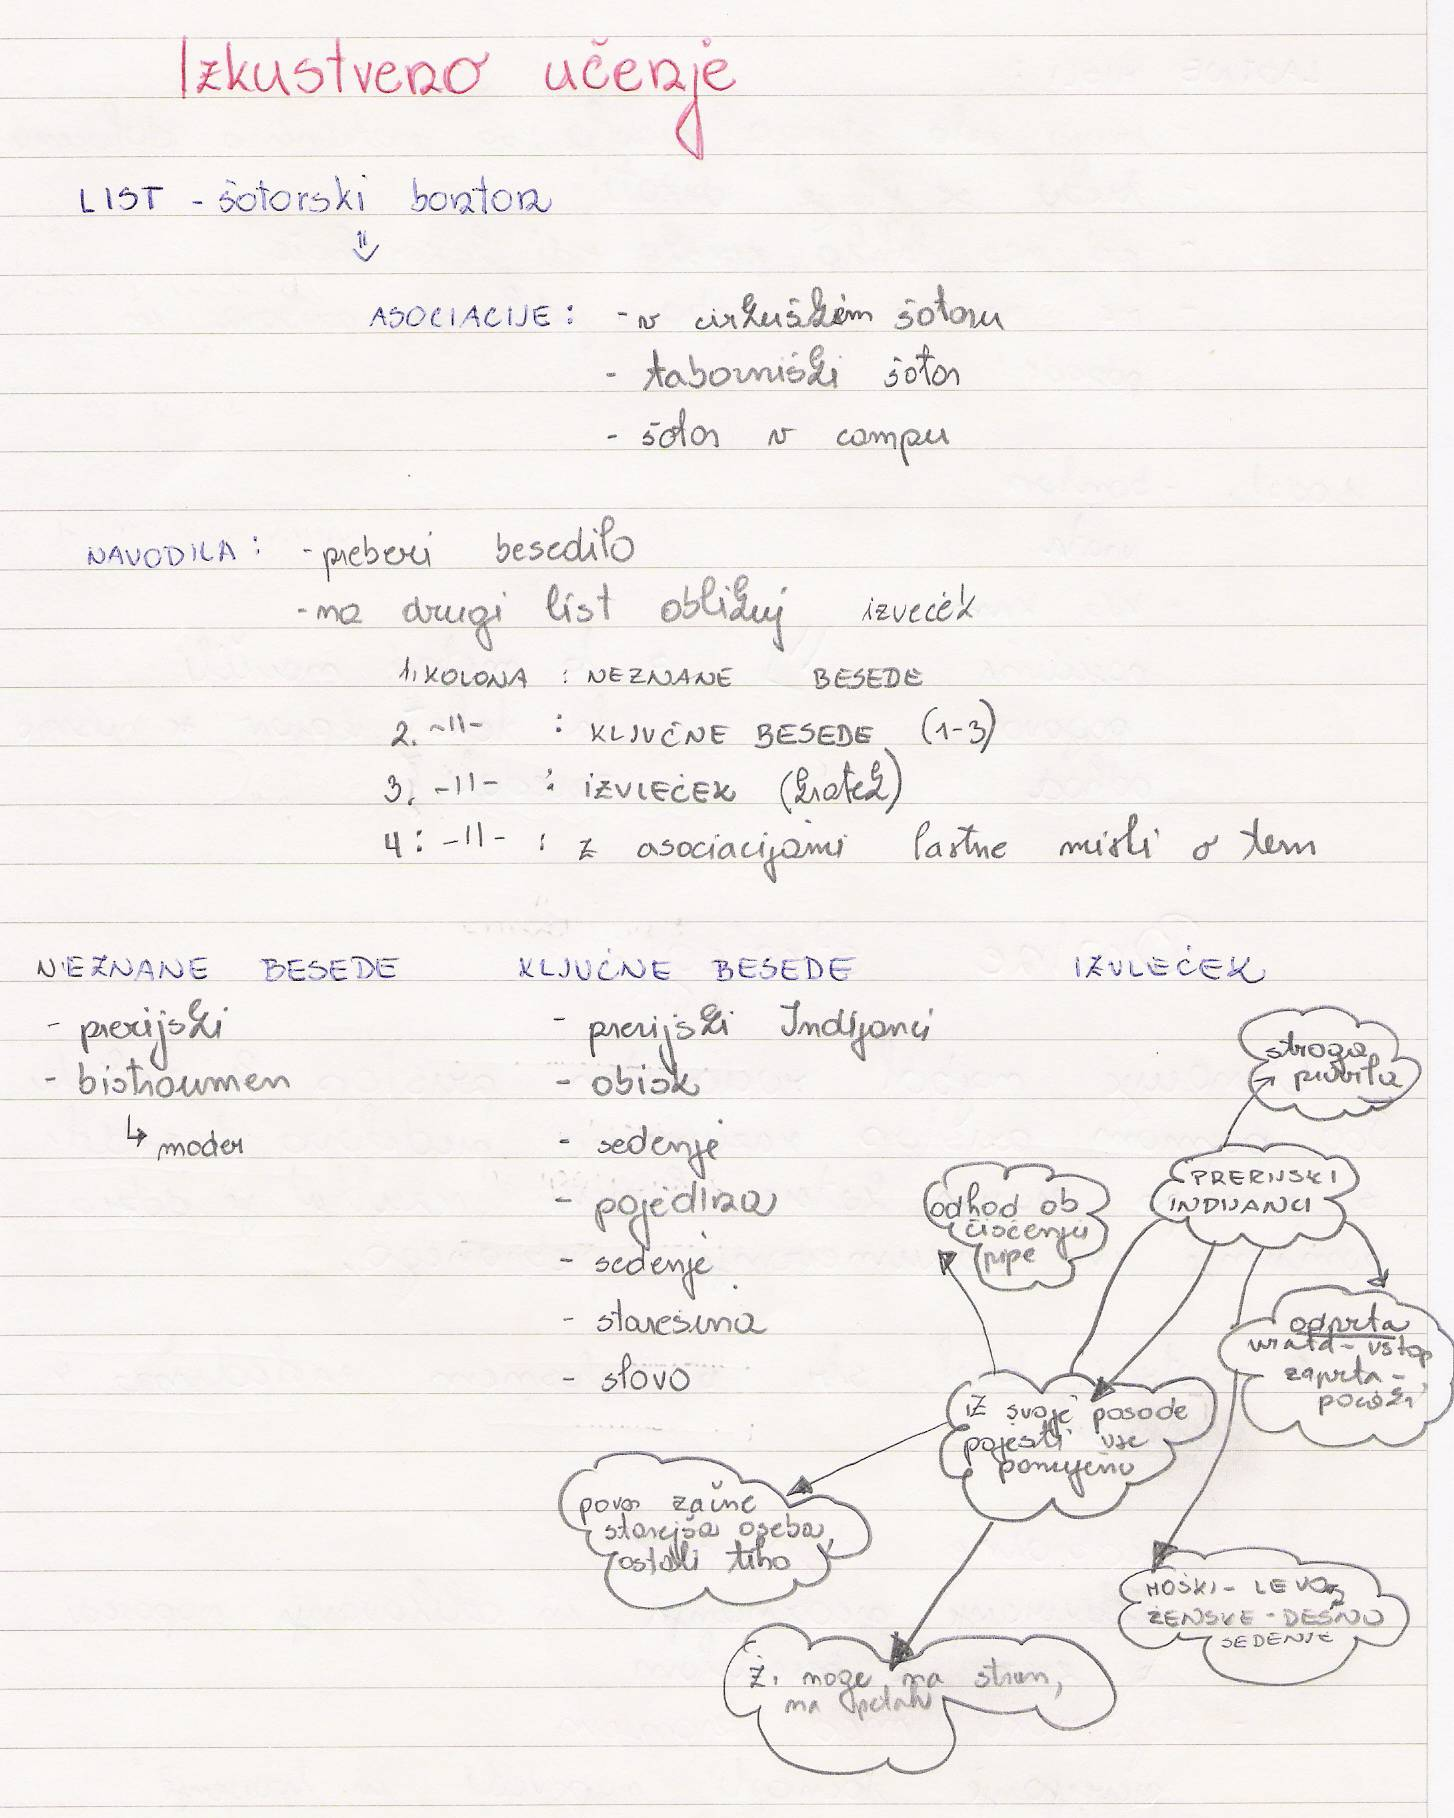 Izkustveno učenje
LIST - šotorski bonton
⇓
ASOCIACIJE: - v cirkuškem šotoru
- taborniški šotor
- šotor v campu
NAVODILA: - preberi besedilo
- na drugi list oblikuj izveček
1. KOLONA : NEZNANE BESEDE
2. -||- : KLJUČNE BESEDE (1-3)
3. -||- : IZVLEČEK (kratek)
4: -||- : z asociacijami lastne misli o tem
NEZNANE BESEDE
- prerijski
- bistroumen
↳ moder
KLJUČNE BESEDE
- prerijski Indijanci
- obisk
- sedenje
- pojedina
- sedenje
- starešina
- slovo
IZVLEČEK
stroga
pravila
PRERIJSKI
INDIJANCI
odhod ob
čiščenju
pipe
odprta
vrata - vstop
zaprta -
počaki
iz svoje posode
pojesti vse
ponujeno
povor začne
starejša oseba,
ostali tiho
MOŠKI - LEVO,
ŽENSKE - DESNO
SEDENJE
Ž. noge na stran,
na petah